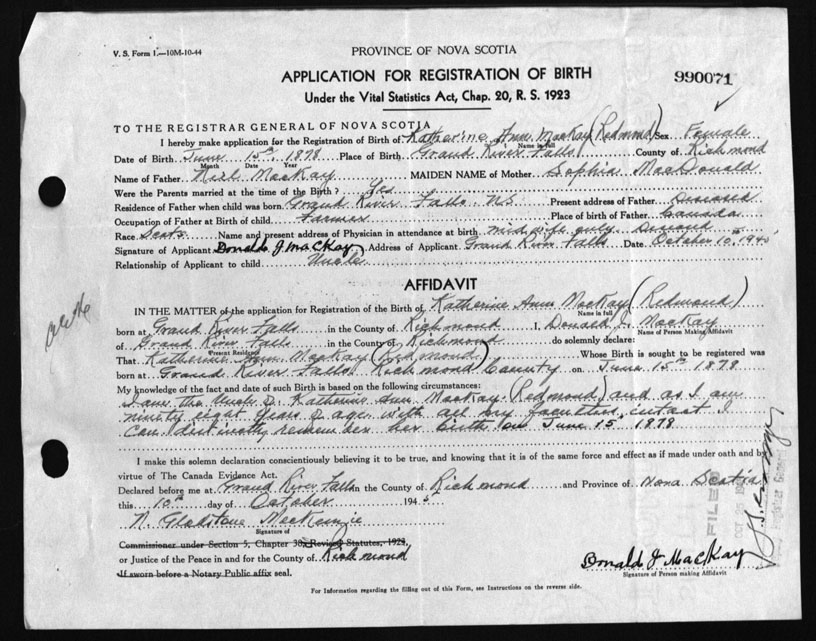 V. S. Form 1.—10M-10-44
PROVINCE OF NOVA SCOTIA
APPLICATION FOR REGISTRATION OF BIRTH
990071
Under the Vital Statistics Act, Chap. 20, R. S. 1923
TO THE REGISTRAR GENERAL OF NOVA SCOTIA
I hereby make application for the Registration of Birth of Katherine Ann MacKay (Redmond) Sex Female
Name in full
Date of Birth June 15th 1878 Place of Birth Grand River Falls County of Richmond
Month Date Year
Name of Father Neil MacKay MAIDEN NAME of Mother Sophia MacDonald
Were the Parents married at the time of the Birth? Yes
Residence of Father when child was born Grand River Falls N.S. Present address of Father Diseased
Occupation of Father at Birth of child Farmer Place of birth of Father Canada
Race Scots Name and present address of Physician in attendance at birth mid wife only
Signature of Applicant Donald J MacKay Address of Applicant Grand River Falls Date October 10th
Relationship of Applicant to child Uncle
AFFIDAVIT
IN THE MATTER of the application for Registration of the Birth of Katherine Ann MacKay (Redmond)
Name in full
born at Grand River Falls in the County of Richmond I, Donald J. MacKay
Name of Person Making Affidavit
of Grand River Falls in the County of Richmond do solemnly declare:
Present Residence
That Katherine Ann MacKay (Redmond) Whose Birth is sought to be registered was
born at Grand River Falls, Richmond County on June 15th 1878
My knowledge of the fact and date of such Birth is based on the following circumstances:
I am the Uncle of Katherine Ann MacKay (Redmond) and as I am
ninety eight years of age with all my faculties intact I
can distinctly remember her birth on June 15 1878
I make this solemn declaration conscientiously believing it to be true, and knowing that it is of the same force and effect as if made under oath and by
virtue of The Canada Evidence Act.
Declared before me at Grand River Falls in the County of Richmond and Province of Nova Scotia
this 10th day of October 194
N. Gladstone MacKenzie
Signature of
Commissioner under Section 5, Chapter 38, Revised Statutes, 1923,
or Justice of the Peace in and for the County of Richmond
If sworn before a Notary Public affix seal.
Donald J MacKay
Signature of Person making Affidavit
For Information regarding the filling out of this Form, see Instructions on the reverse side.
FILED